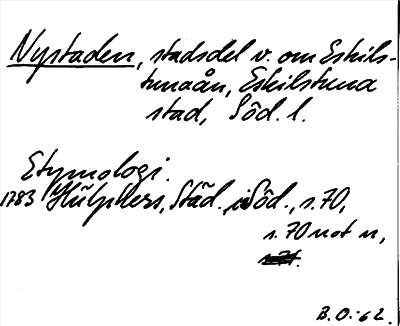 Nystaden, stadsdel v. om Eskils-
tunaån, Eskilstuna
stad, Söd. l.
Etymologi.
1783 Hülphers, Städ. i Söd., s. 70,
s. 70 not n,
B. O:-62.